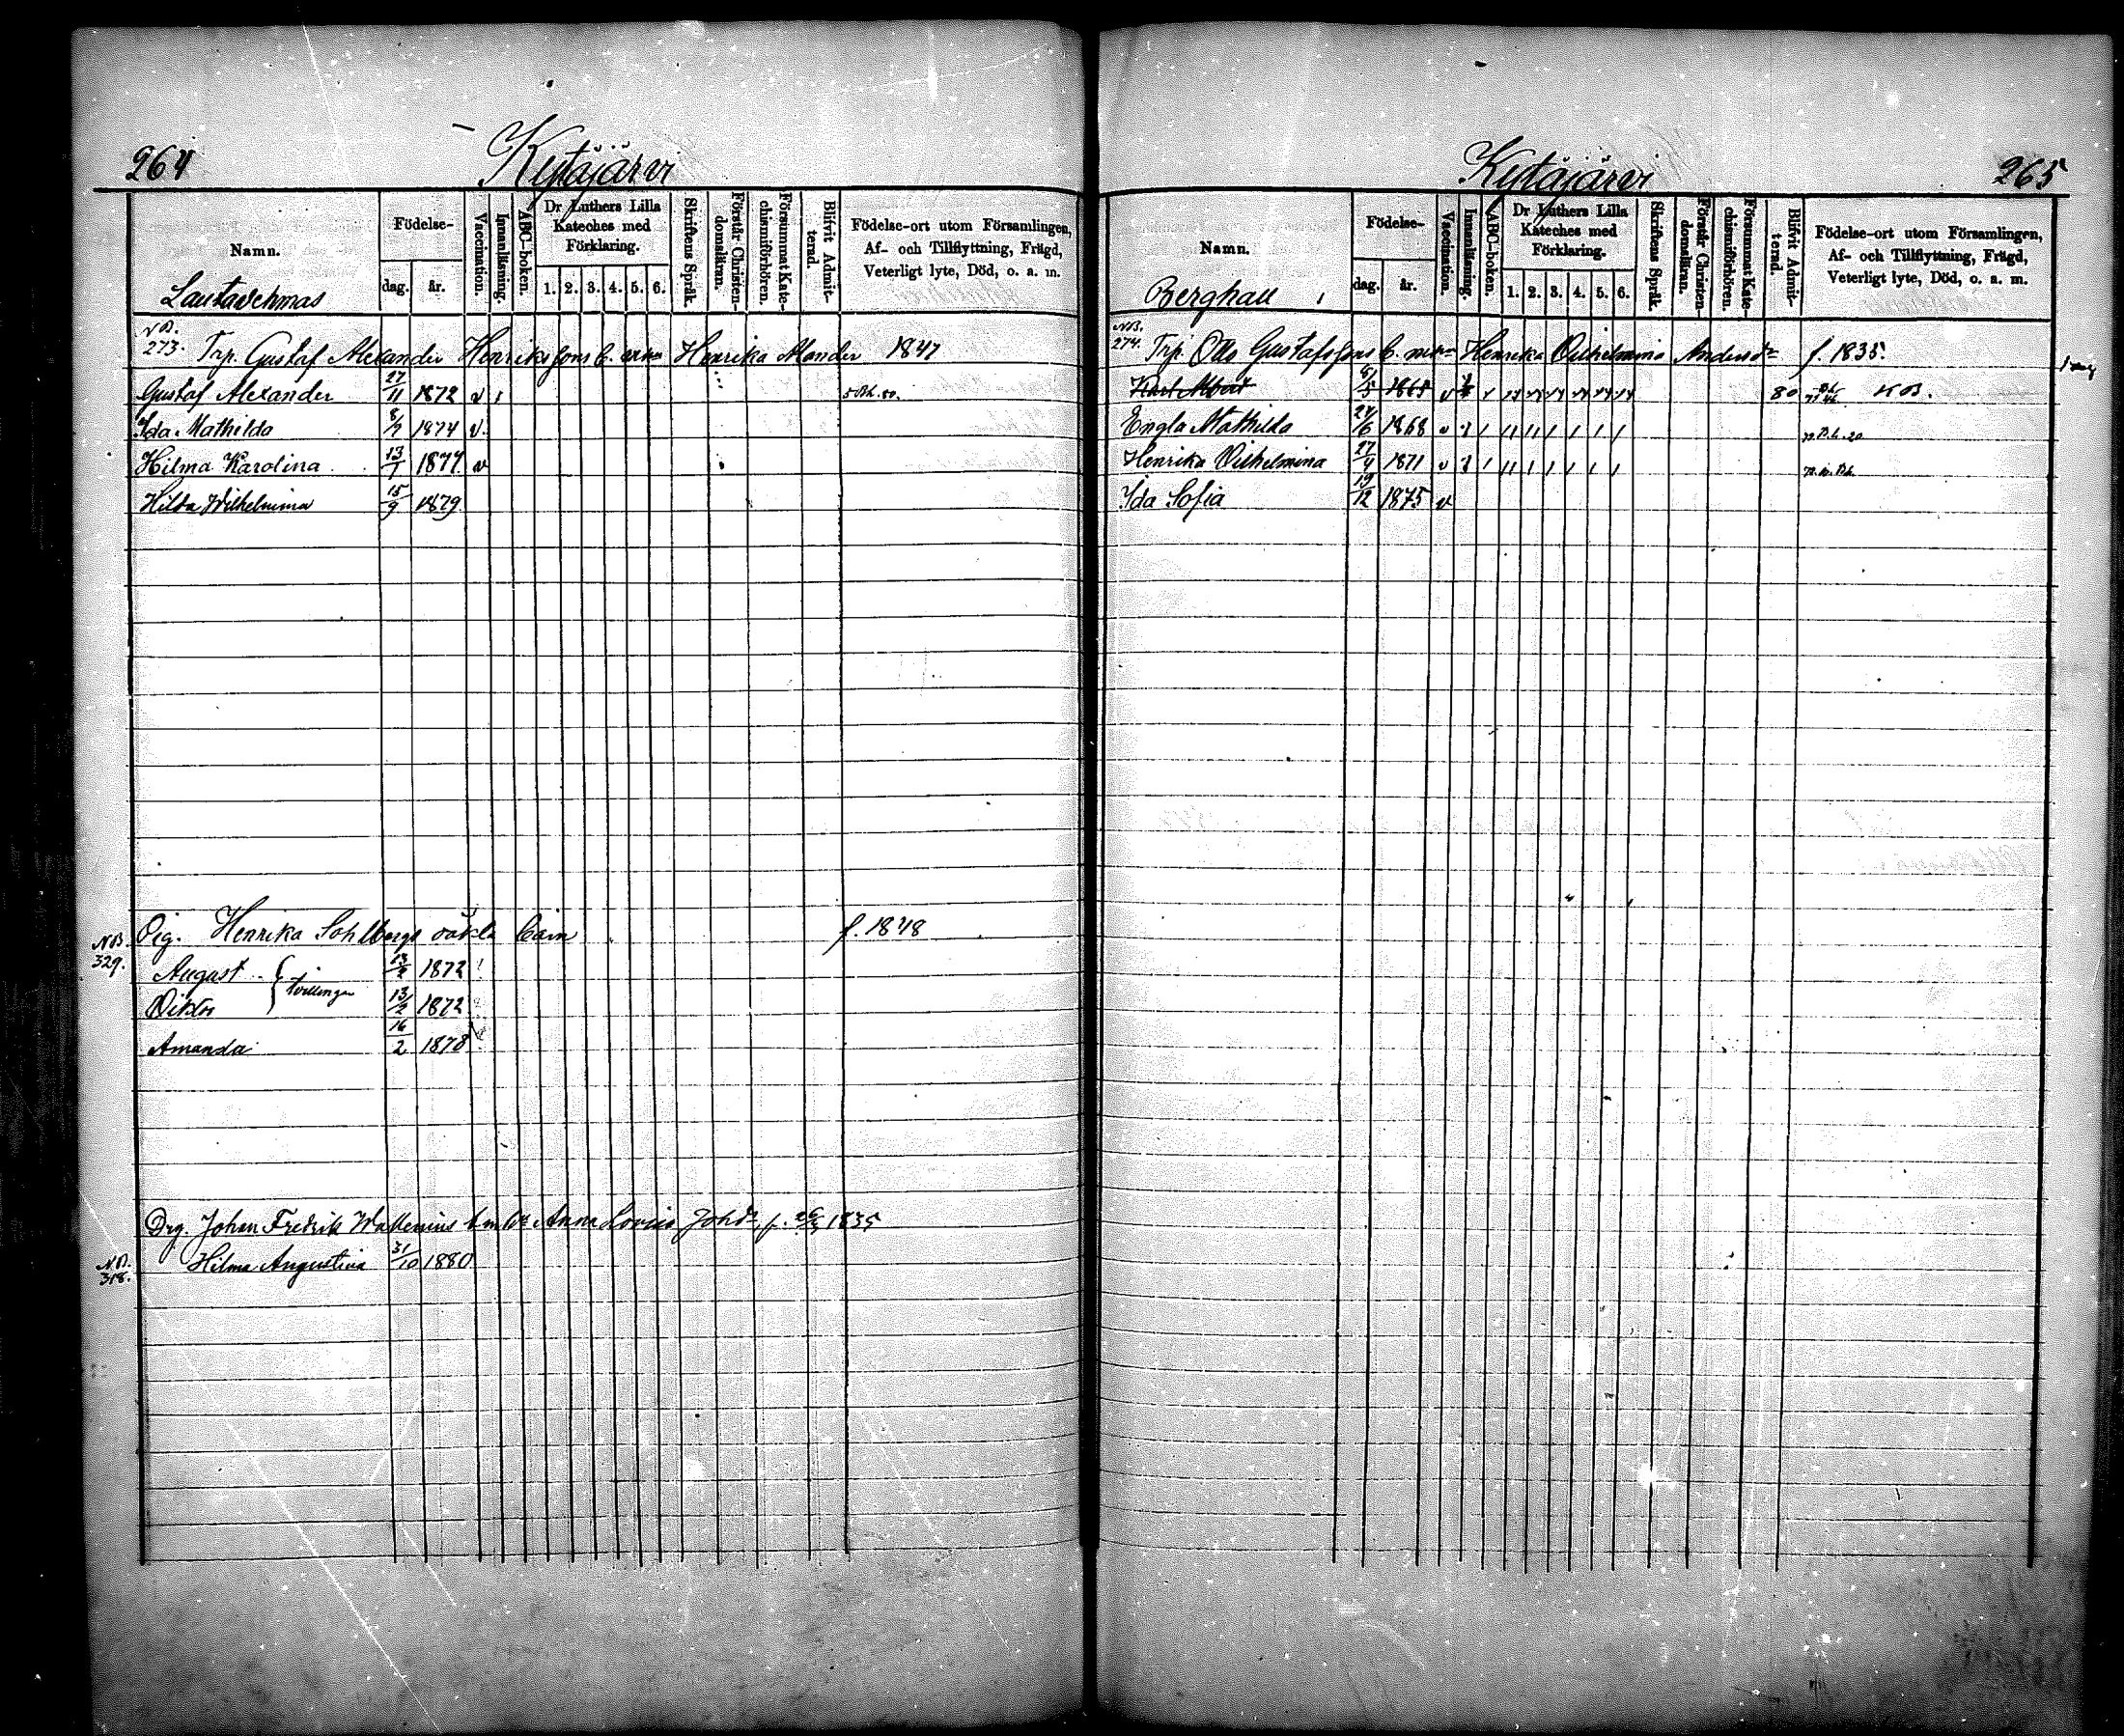 264
Kytäjärvi
Namn.
Födelse-
dag. år.
Vaccination.
Innanläsning.
ABC-boken.
Dr Luthers Lilla
Kateches med
Förklaring.
1. 2. 3. 4. 5. 6.
Skriftens Språk.
Förstår Christen-
domsläran.
Försummat Kate-
chismiförhören.
Blifvit Admit-
terad.
Födelse-ort utom Församlingen,
Af- och Tillflyttning, Frägd,
Veterligt lyte, Död, o. a. m.
NB.
273. Trp. Gustaf Alexander Henrikssons b. Henrika 1847
Gustaf Alexander 27/11 1872 v
Ida Mathilda 8/7 1874 v.
Hilma Karolina 13/1 1877 v
Hilda Wilhelmina 15/9 1879
NB
329. Pig. Henrika Sohlbergs oäkta barn f. 1848
August 13/2 1872
tvillingar
Viktor 13/2 1872
Amanda 16/2 1878
Drg. Johan Fredrik Wallenius Anna Lovisa Johdr, f. 1835
NB.
318. Hilma Augustina 31/10 1880
Kytäjärvi
265
Namn.
Berghall
Födelse-
dag. år.
Vaccination.
Innanläsning.
ABC-boken.
Dr Luthers Lilla
Kateches med
Förklaring.
1. 2. 3. 4. 5. 6.
Skriftens Språk.
Förstår Christen-
domsläran.
Försummat Kate-
chismiförhören.
Blifvit Admit-
terad.
Födelse-ort utom Församlingen,
Af- och Tillflyttning, Frägd,
Veterligt lyte, Död, o. a. m.
NB.
274. Trp. Otto Gustafssons b. Henrika Vilhelmina f. 1835.
Karl Albert 1865 v 80 NB.
Engla Mathilda 24/6 1868 v
Henrika Vilhelmina 27/4 1871 v
Ida Sofia 19/12 1875 v